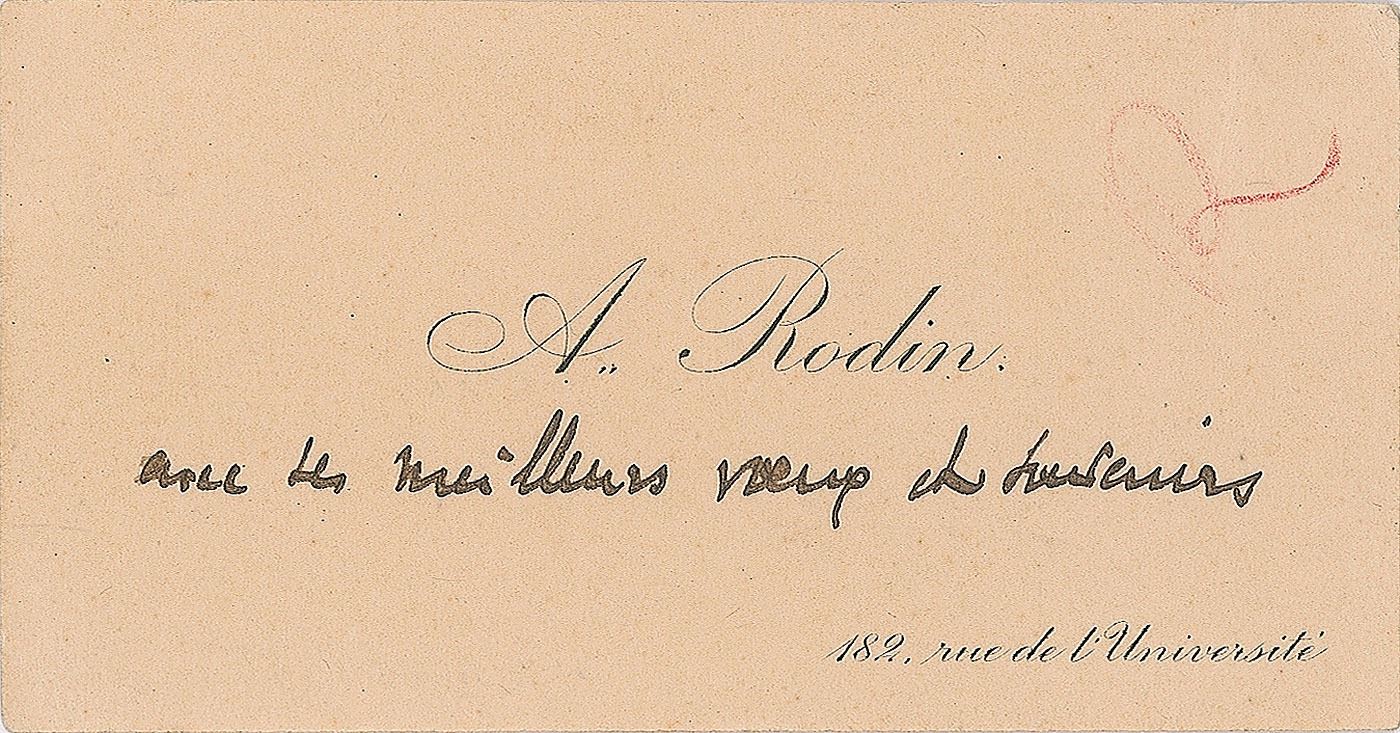 A. Rodin.
avec ses meilleurs vœux et souvenirs
182, rue de l'Université